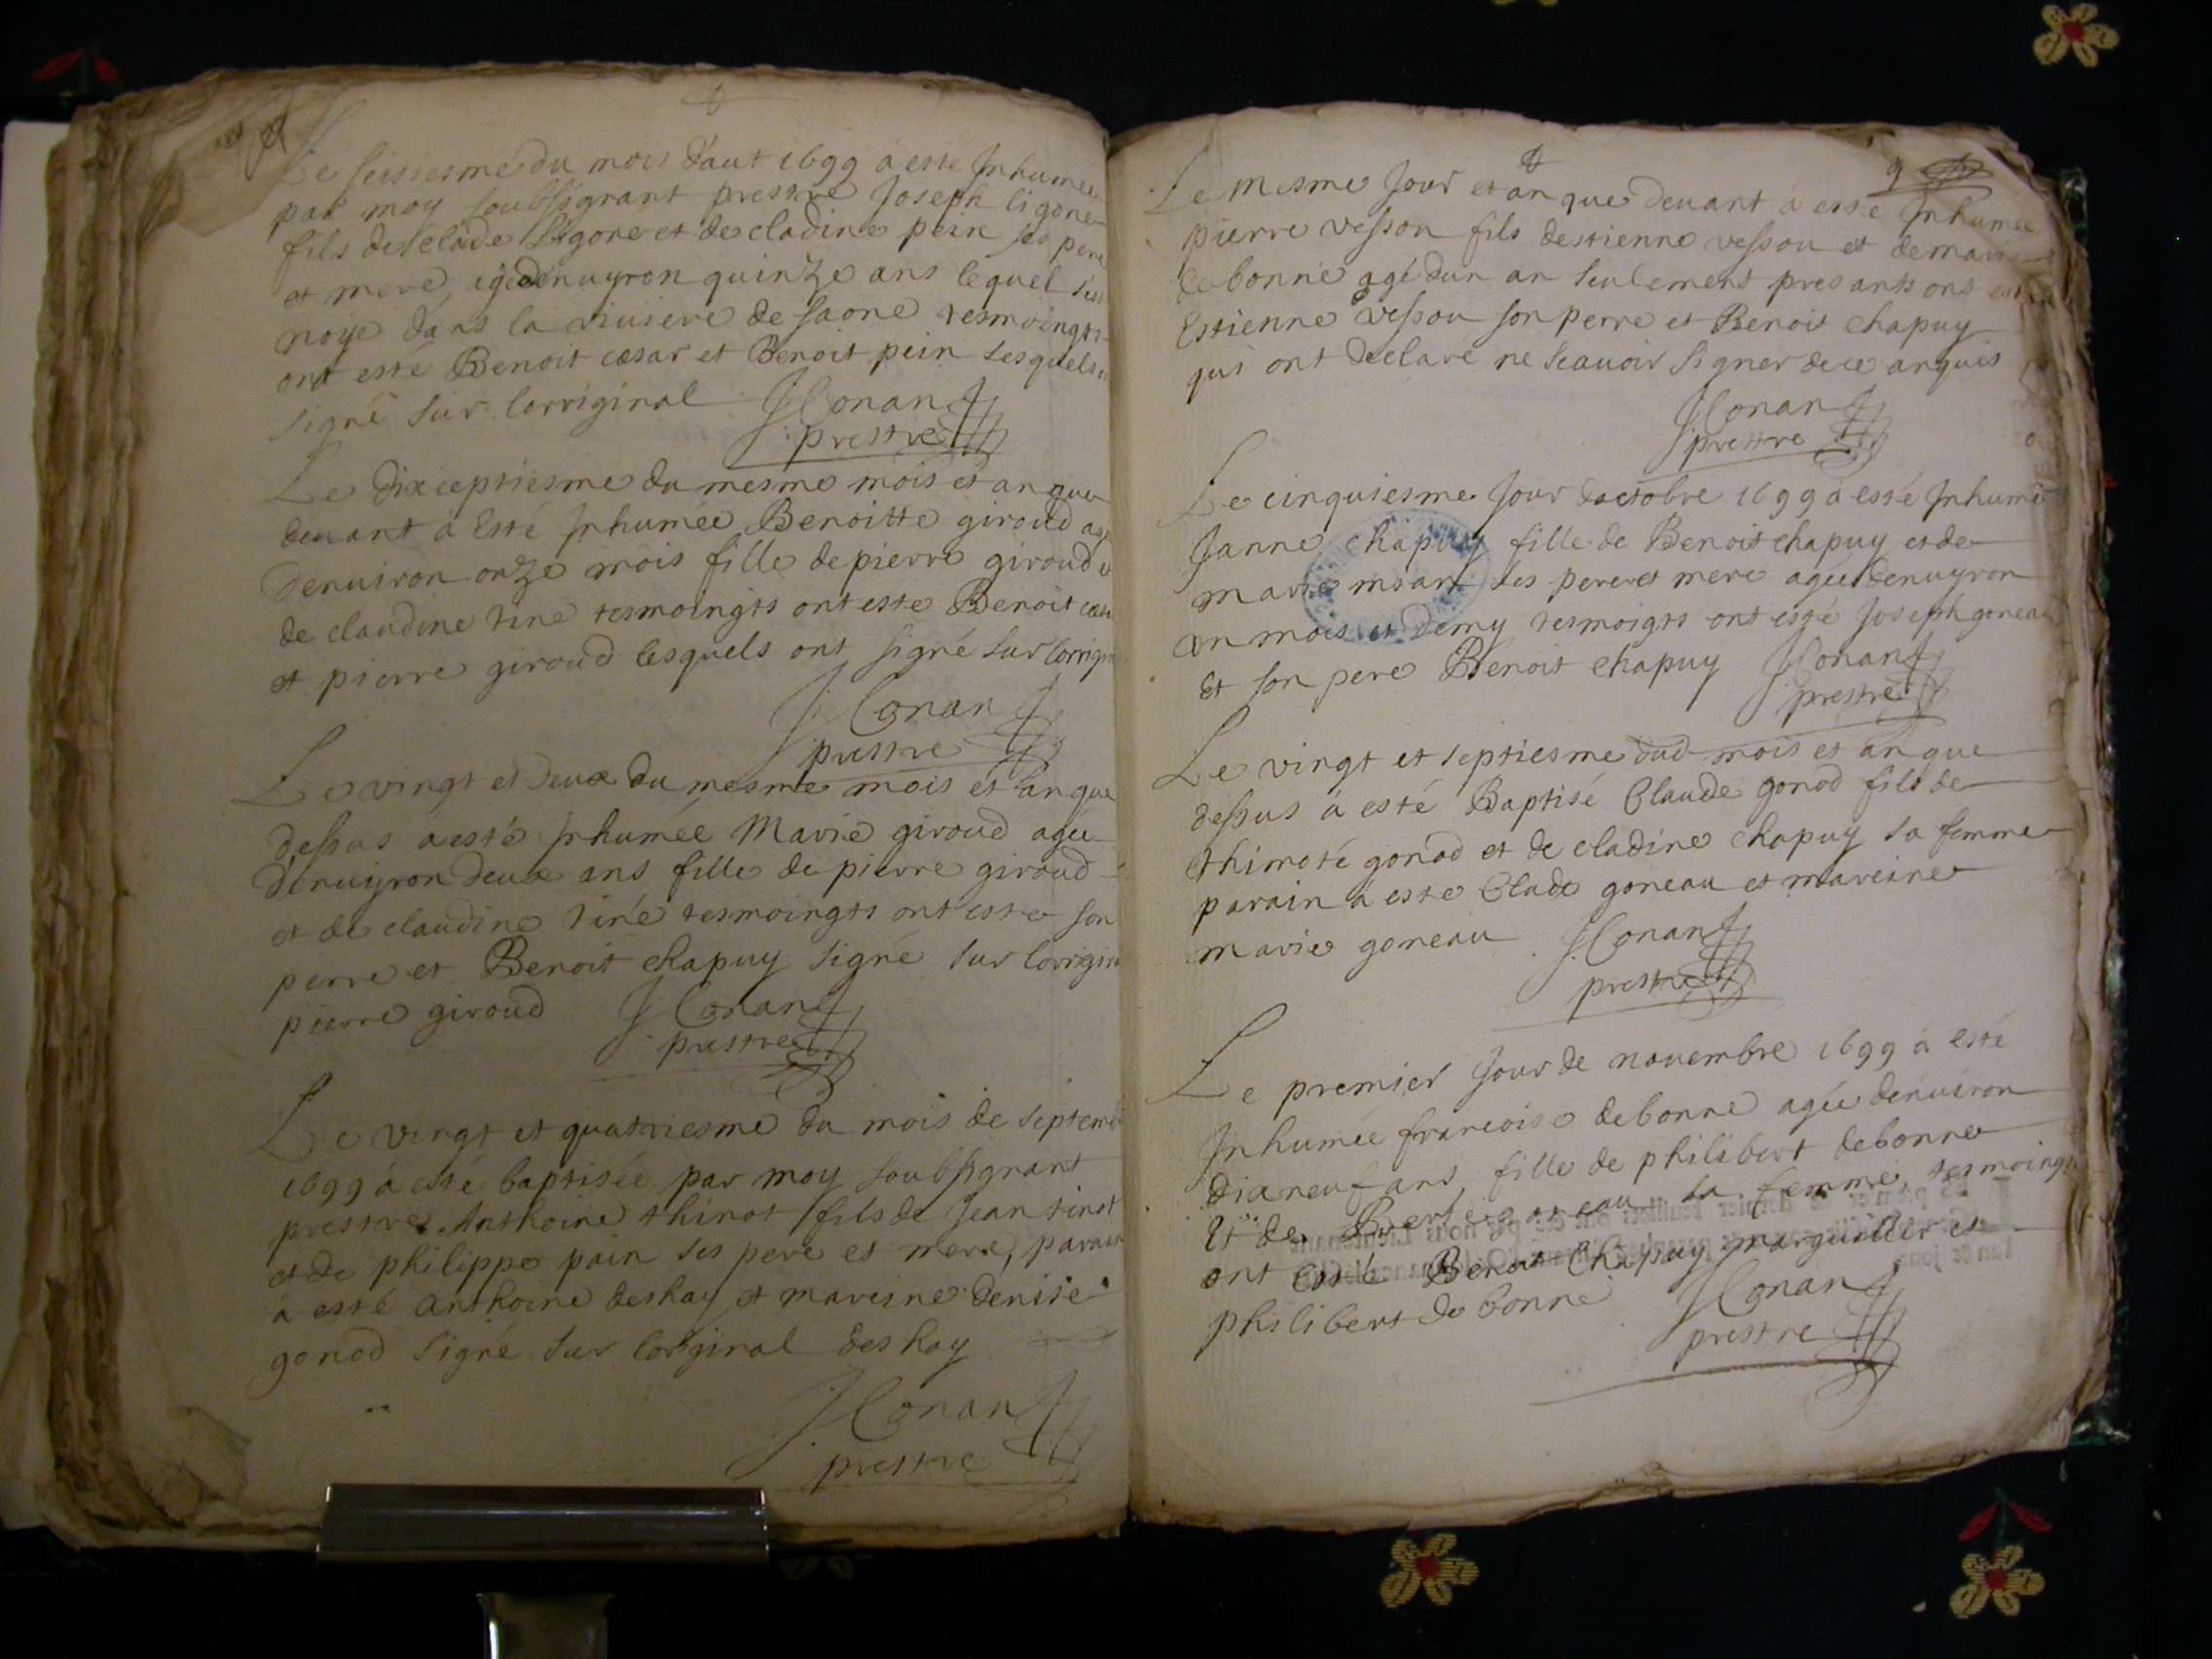 Le seisiesme du mois d'aut 1699 a este Inhumee
par moy soubssignant prestre Joseph ligone
fils de clade ligone et de cladine pein ses pere
et mere, agé denuyron quinze ans lequel sest
noye dans la riuiere de saone tesmoingts
ont esté Benoit cæsar et Benoit pein lesquels
signé sur lorriginal JConan
prestre
Le dixceptiesme du mesme mois et an que
deuant a Esté Inhumée Benoitte giroud agé
denuiron onze mois fille de pierre giroud et
de claudine tine tesmoingts ont este Benoit cæsar
et pierre giroud lesquels ont signé sur lorrigin
J Conan
prestre
Le vingt et deux du mesme mois et an que
dessus a esté Inhumée Marie giroud agée
denuyron deux ans fille de pierre giroud
et de claudine tiné tesmoingts ont este son
perre et Benoit chapuy signé sur lorrigin
pierre giroud J Conan
prestre
Le vingt et quatriesme du mois de septemb
1699 a esté baptisée par moy soubssignant
prestre Anthoine thinot fils de Jean tinot
et de philippe pain ses pere et mere, parain
a esté anthoine deshay et mareine denise
gonod signé sur lorriginal deshay
JConan
prestre
9
Le mesme Jour et an que deuant a esté Inhumée
pierre vesson fils destienne vesson et de marie
debonne agé dun an seulement presants ont esté
Estienne vesson son perre et Benoit chapuy
qui ont declaré ne scauoir signer de ce anquis
JConan
prestre
Le cinquiesme Jour doctobre 1699 a esté Inhumé
Janne chapuy fille de Benoit chapuy et de
marie ses pere et mere agée denuyron
un mois et demy tesmoigts ont esté Joseph goneau
Et son pere Benoit chapuy JConan
prestre
Le vingt et septiesme dud mois et an que
dessus a esté Baptisé Claude gonod fils de
thimoté gonod et de cladine chapuy sa femme
parain a este Clade goneau et mareine
marie goneau JConan
prestre
Le premier Jour de nouembre 1699 a esté
Inhumée francoise debonne agée denuiron
dixneuf ans, fille de philibert debonne
Et de goneau sa femme, tesmoingts
ont Esté Benoit Chapuy marguillier et
philibert de bonne JConan
prestre